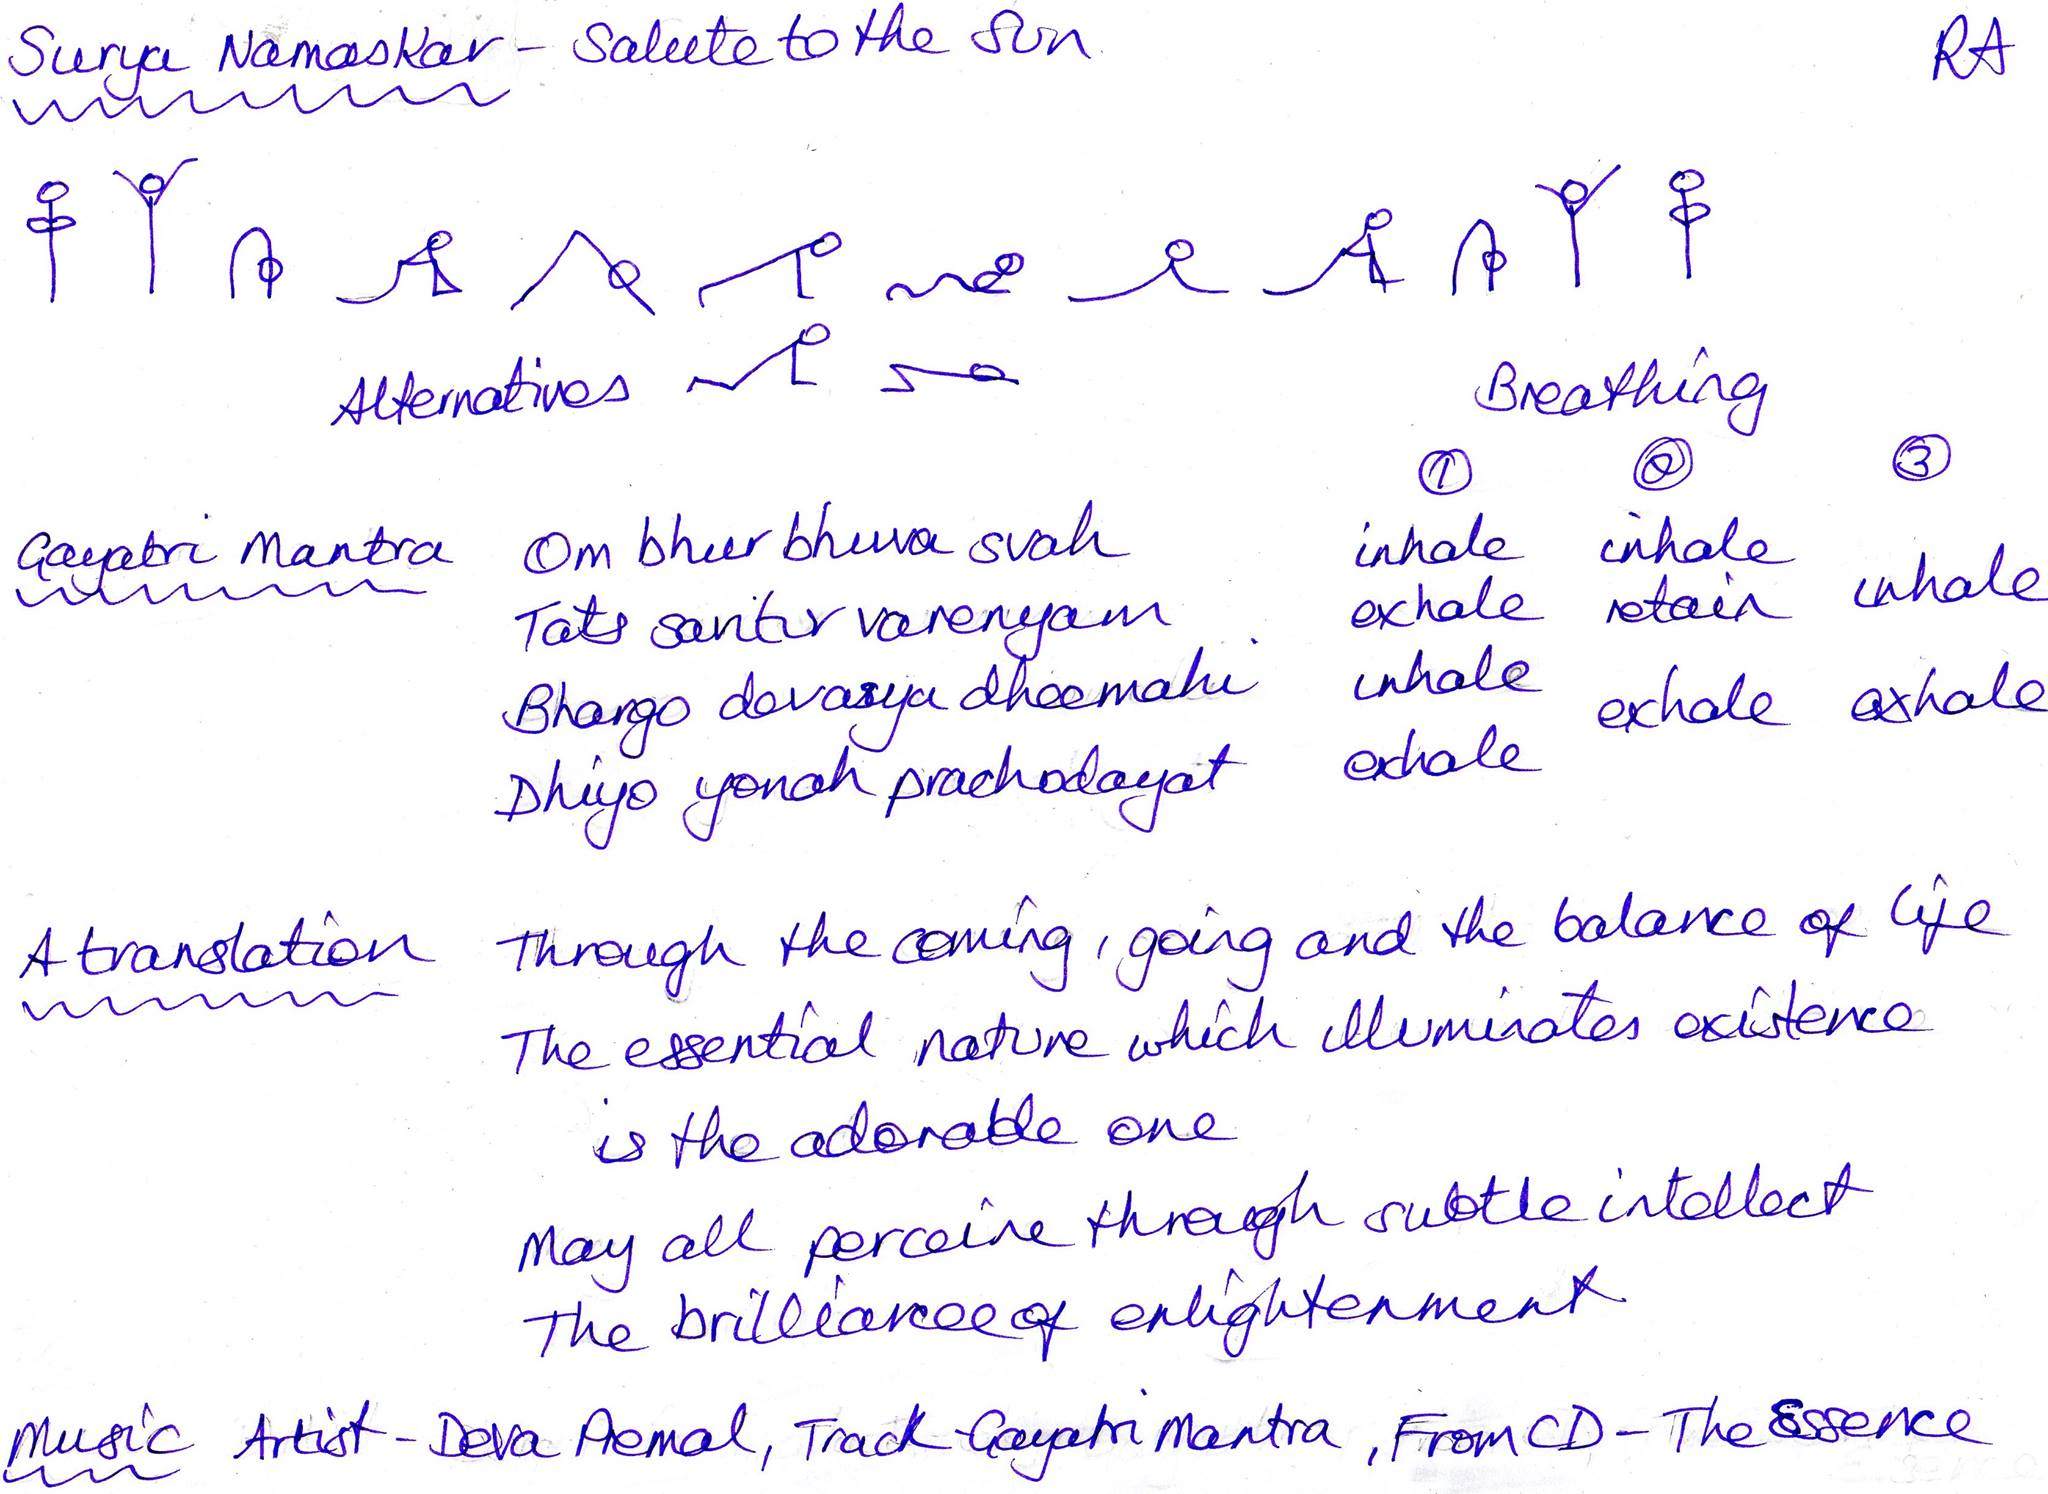 Surya Namaskar - Salute to the Sun RA
Alternatives
Breathing
① ② ③
Gayatri Mantra Om bhur bhuva svah inhale inhale
Tats savitur varenyam exhale retain inhale
Bhargo devasya dheemahi inhale exhale exhale
Dhiyo yonah prachodayat exhale
A translation Through the coming, going and the balance of life
The essential nature which illuminates existence
is the adorable one
May all perceive through subtle intellect
The brilliance of enlightenment
Music Artist - Deva Premal, Track - Gayatri Mantra, From CD - The Essence